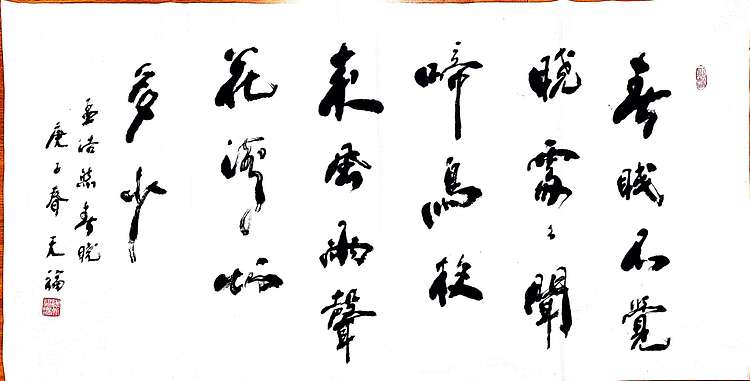 春眠不覺
晓處々聞
啼鳥夜
来風雨聲
花落知
多少
孟浩然春晓
庚子春 福